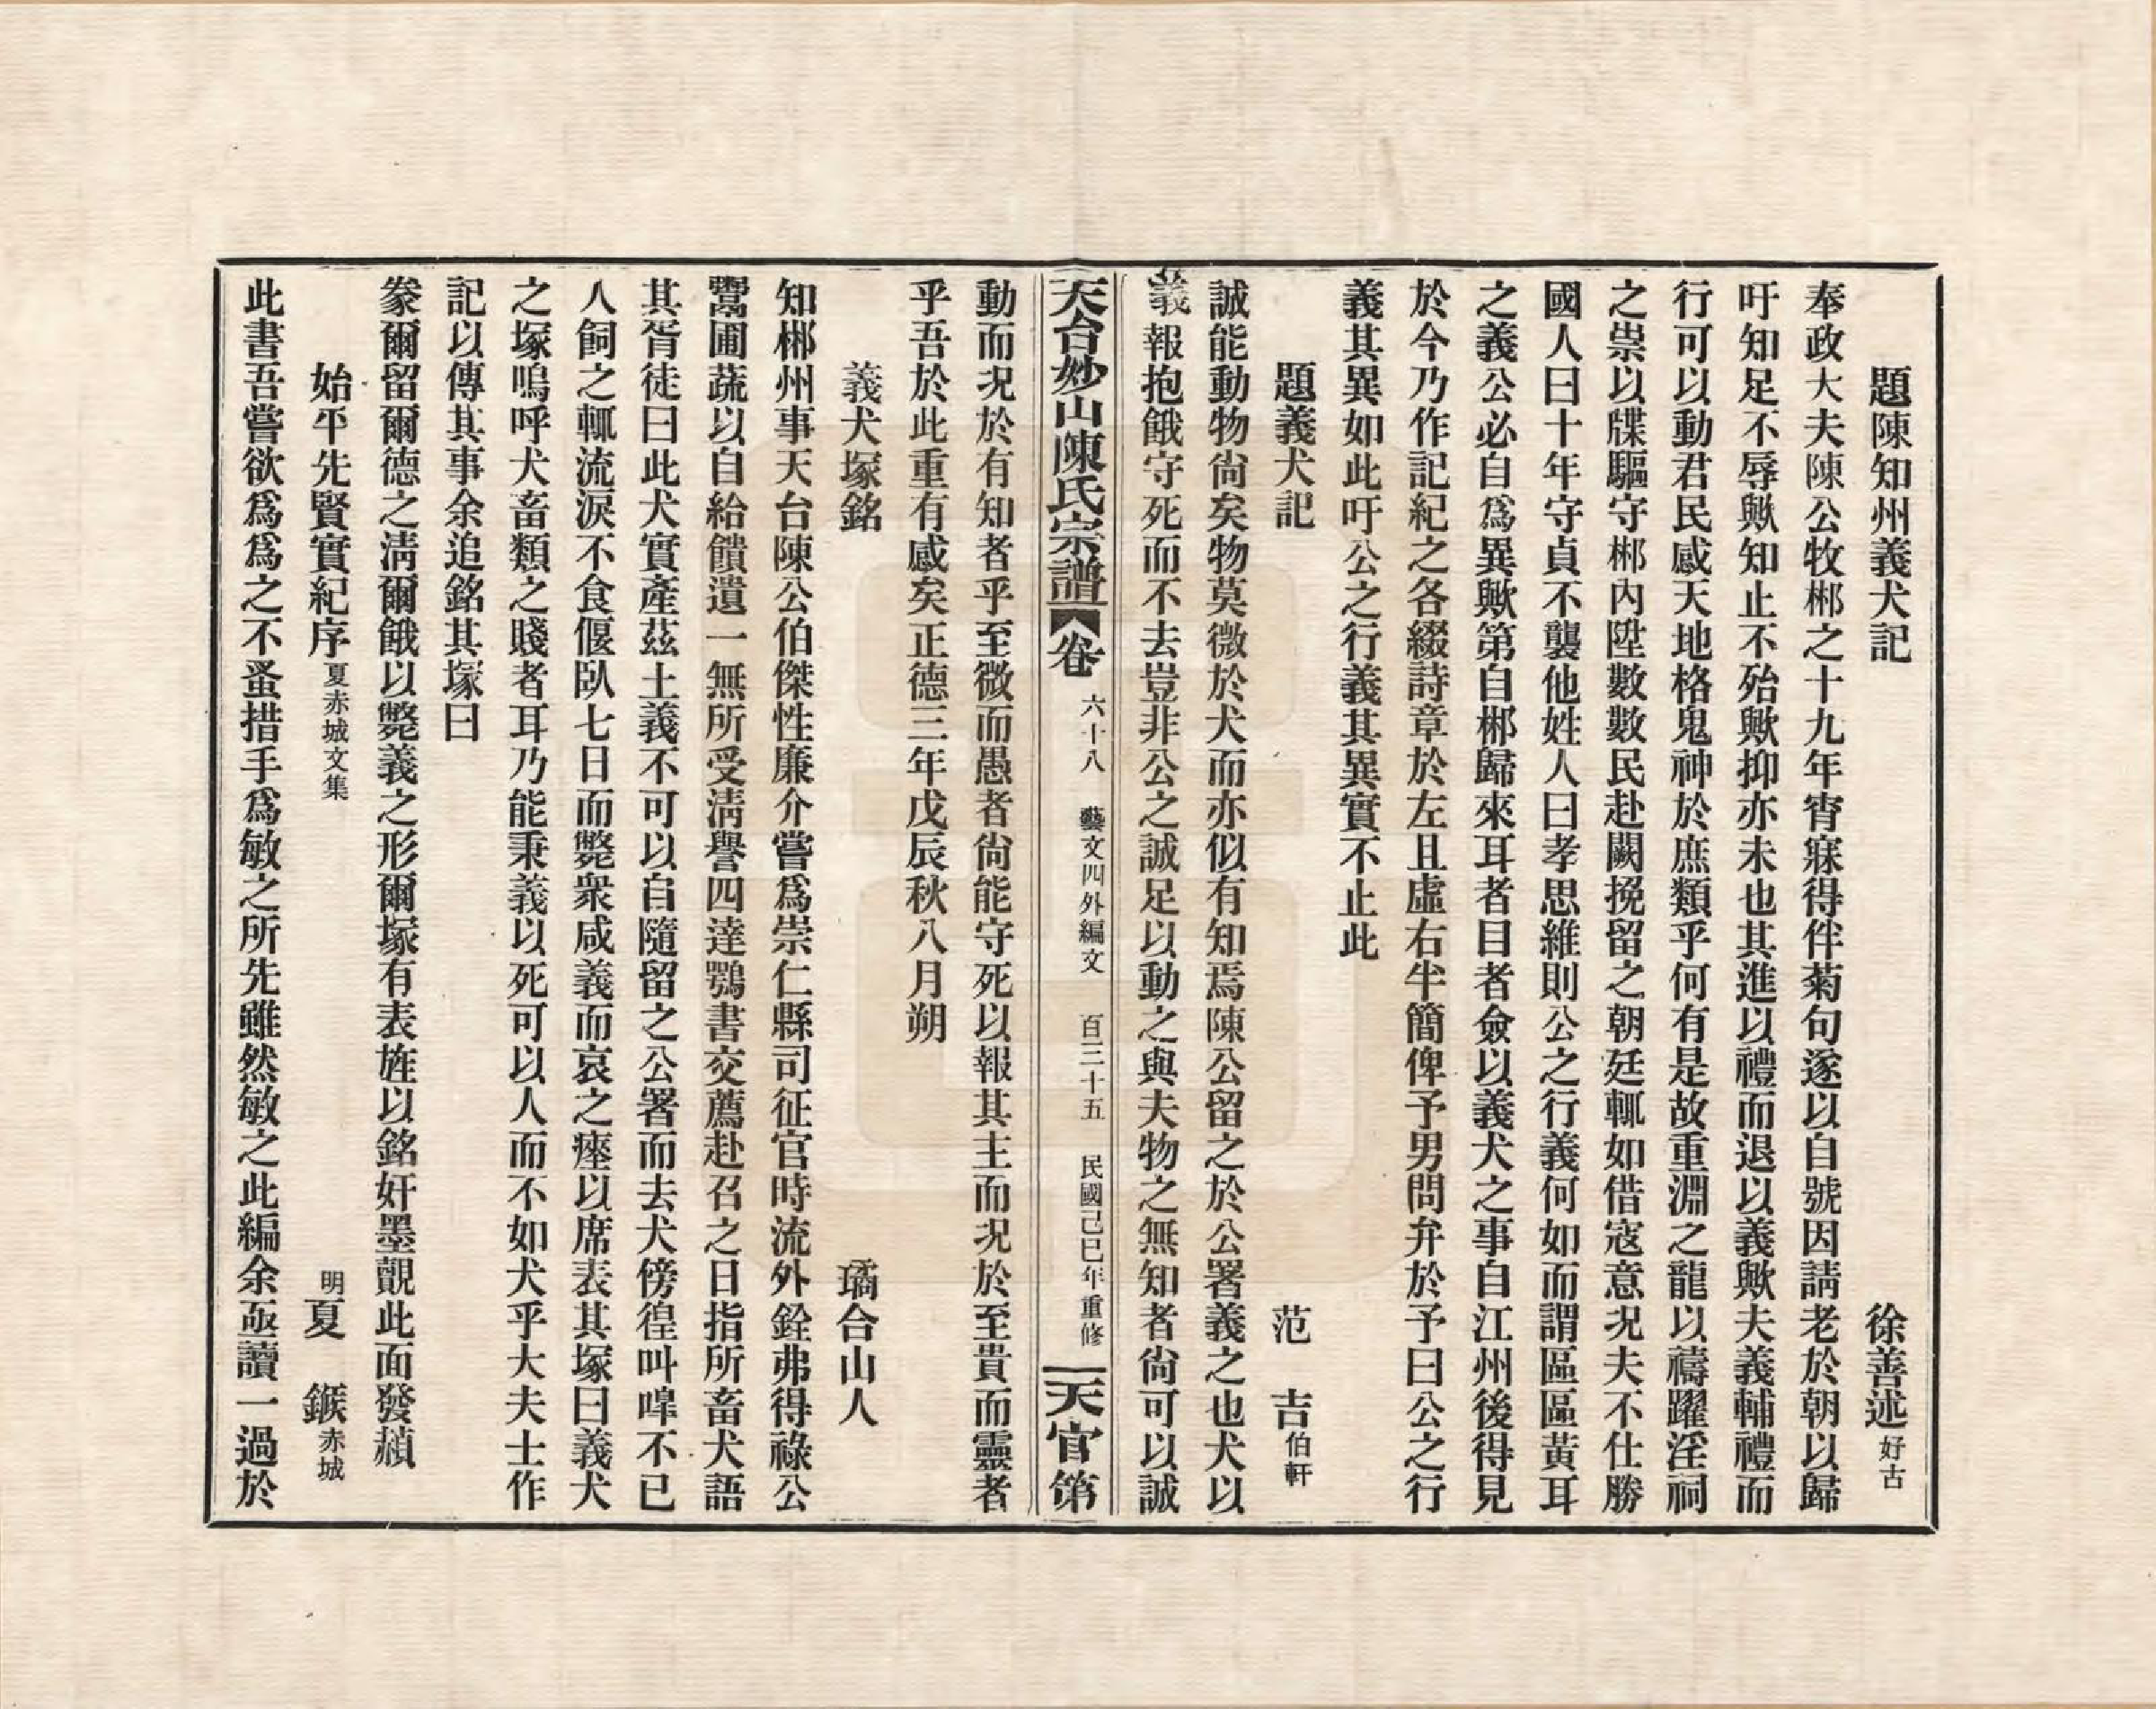 題陳知州義犬記　徐善述好古
奉政大夫陳公牧郴之十九年宵寐得伴菊句遂以自號因請老於朝以歸
吁知足不辱歟知止不殆歟抑亦未也其進以禮而退以義歟夫義輔禮而
行可以動君民感天地格鬼神於庶類乎何有是故重淵之龍以禱躍淫祠
之祟以牒驅守郴內陞數數民赴闕挽留之朝廷輒如借寇意況夫不仕勝
國人曰十年守貞不襲他姓人曰孝思維則公之行義何如而謂區區黃耳
之義公必自爲異歟第自郴歸來耳者目者僉以義犬之事自江州後得見
於今乃作記紀之各綴詩章於左且虛右半簡俾予男問弁於予曰公之行
義其異如此吁公之行義其異實不止此
題義犬記　范吉伯軒
誠能動物尙矣物莫微於犬而亦似有知焉陳公留之於公署義之也犬以
義報抱餓守死而不去豈非公之誠足以動之與夫物之無知者尙可以誠
天台妙山陳氏宗譜　卷六十八　藝文四外編文　百三十五　民國己巳年重修　天官第
動而況於有知者乎至微而愚者尙能守死以報其主而況於至貴而靈者
乎吾於此重有感矣正德三年戊辰秋八月朔
義犬塚銘　璚合山人
知郴州事天台陳公伯傑性廉介嘗爲崇仁縣司征官時流外銓弗得祿公
鬻圃蔬以自給饋遺一無所受淸譽四達鶚書交薦赴召之日指所畜犬語
其胥徒曰此犬實產茲土義不可以自隨留之公署而去犬傍徨叫嘷不已
人飼之輒流淚不食偃臥七日而斃衆咸義而哀之瘞以席表其塚曰義犬
之塚嗚呼犬畜類之賤者耳乃能秉義以死可以人而不如犬乎大夫士作
記以傳其事余追銘其塚曰
豢爾留爾德之淸爾餓以斃義之形爾塚有表旌以銘奸墨覿此面發赬
始平先賢實紀序夏赤城文集　明夏鍭赤城
此書吾嘗欲爲爲之不蚤措手爲敏之所先雖然敏之此編余亟讀一過於